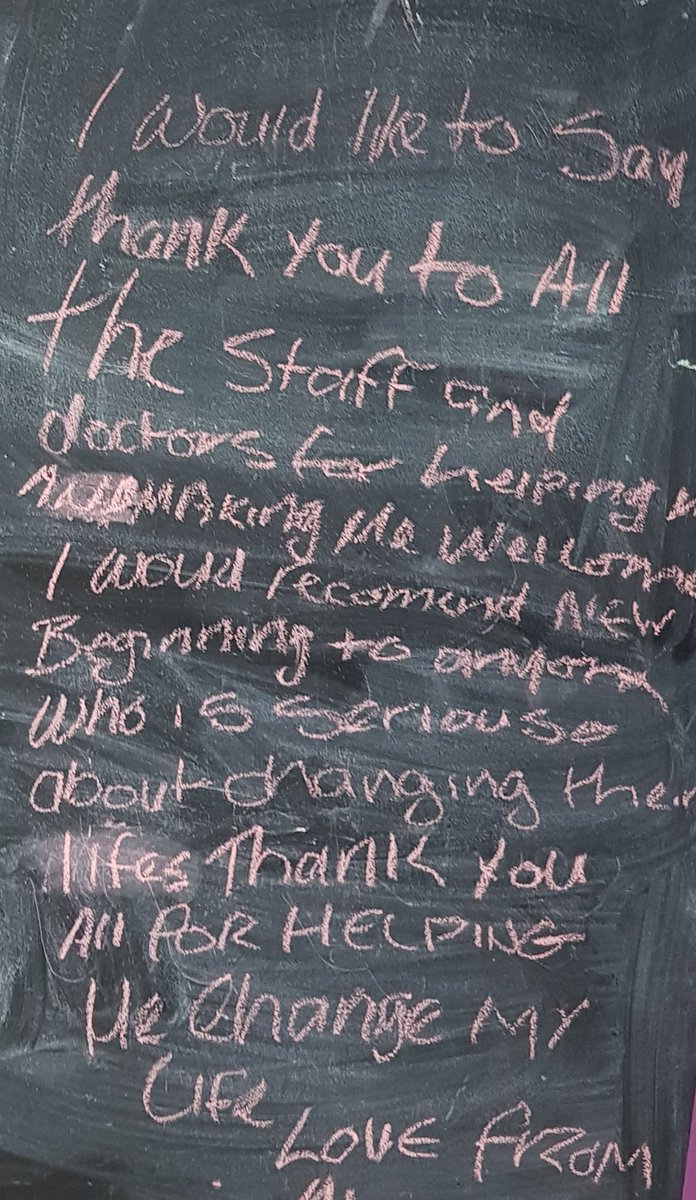 I would like to Say
thank you to All
the Staff and
doctors for helping
MAKing Me Wellcome
I would recomend NEW
Beginning to anyone
who is seriouse
about changing their
lifes Thank you
All FOR HELPING
Me Change MY
LiFe
LOVE FROM